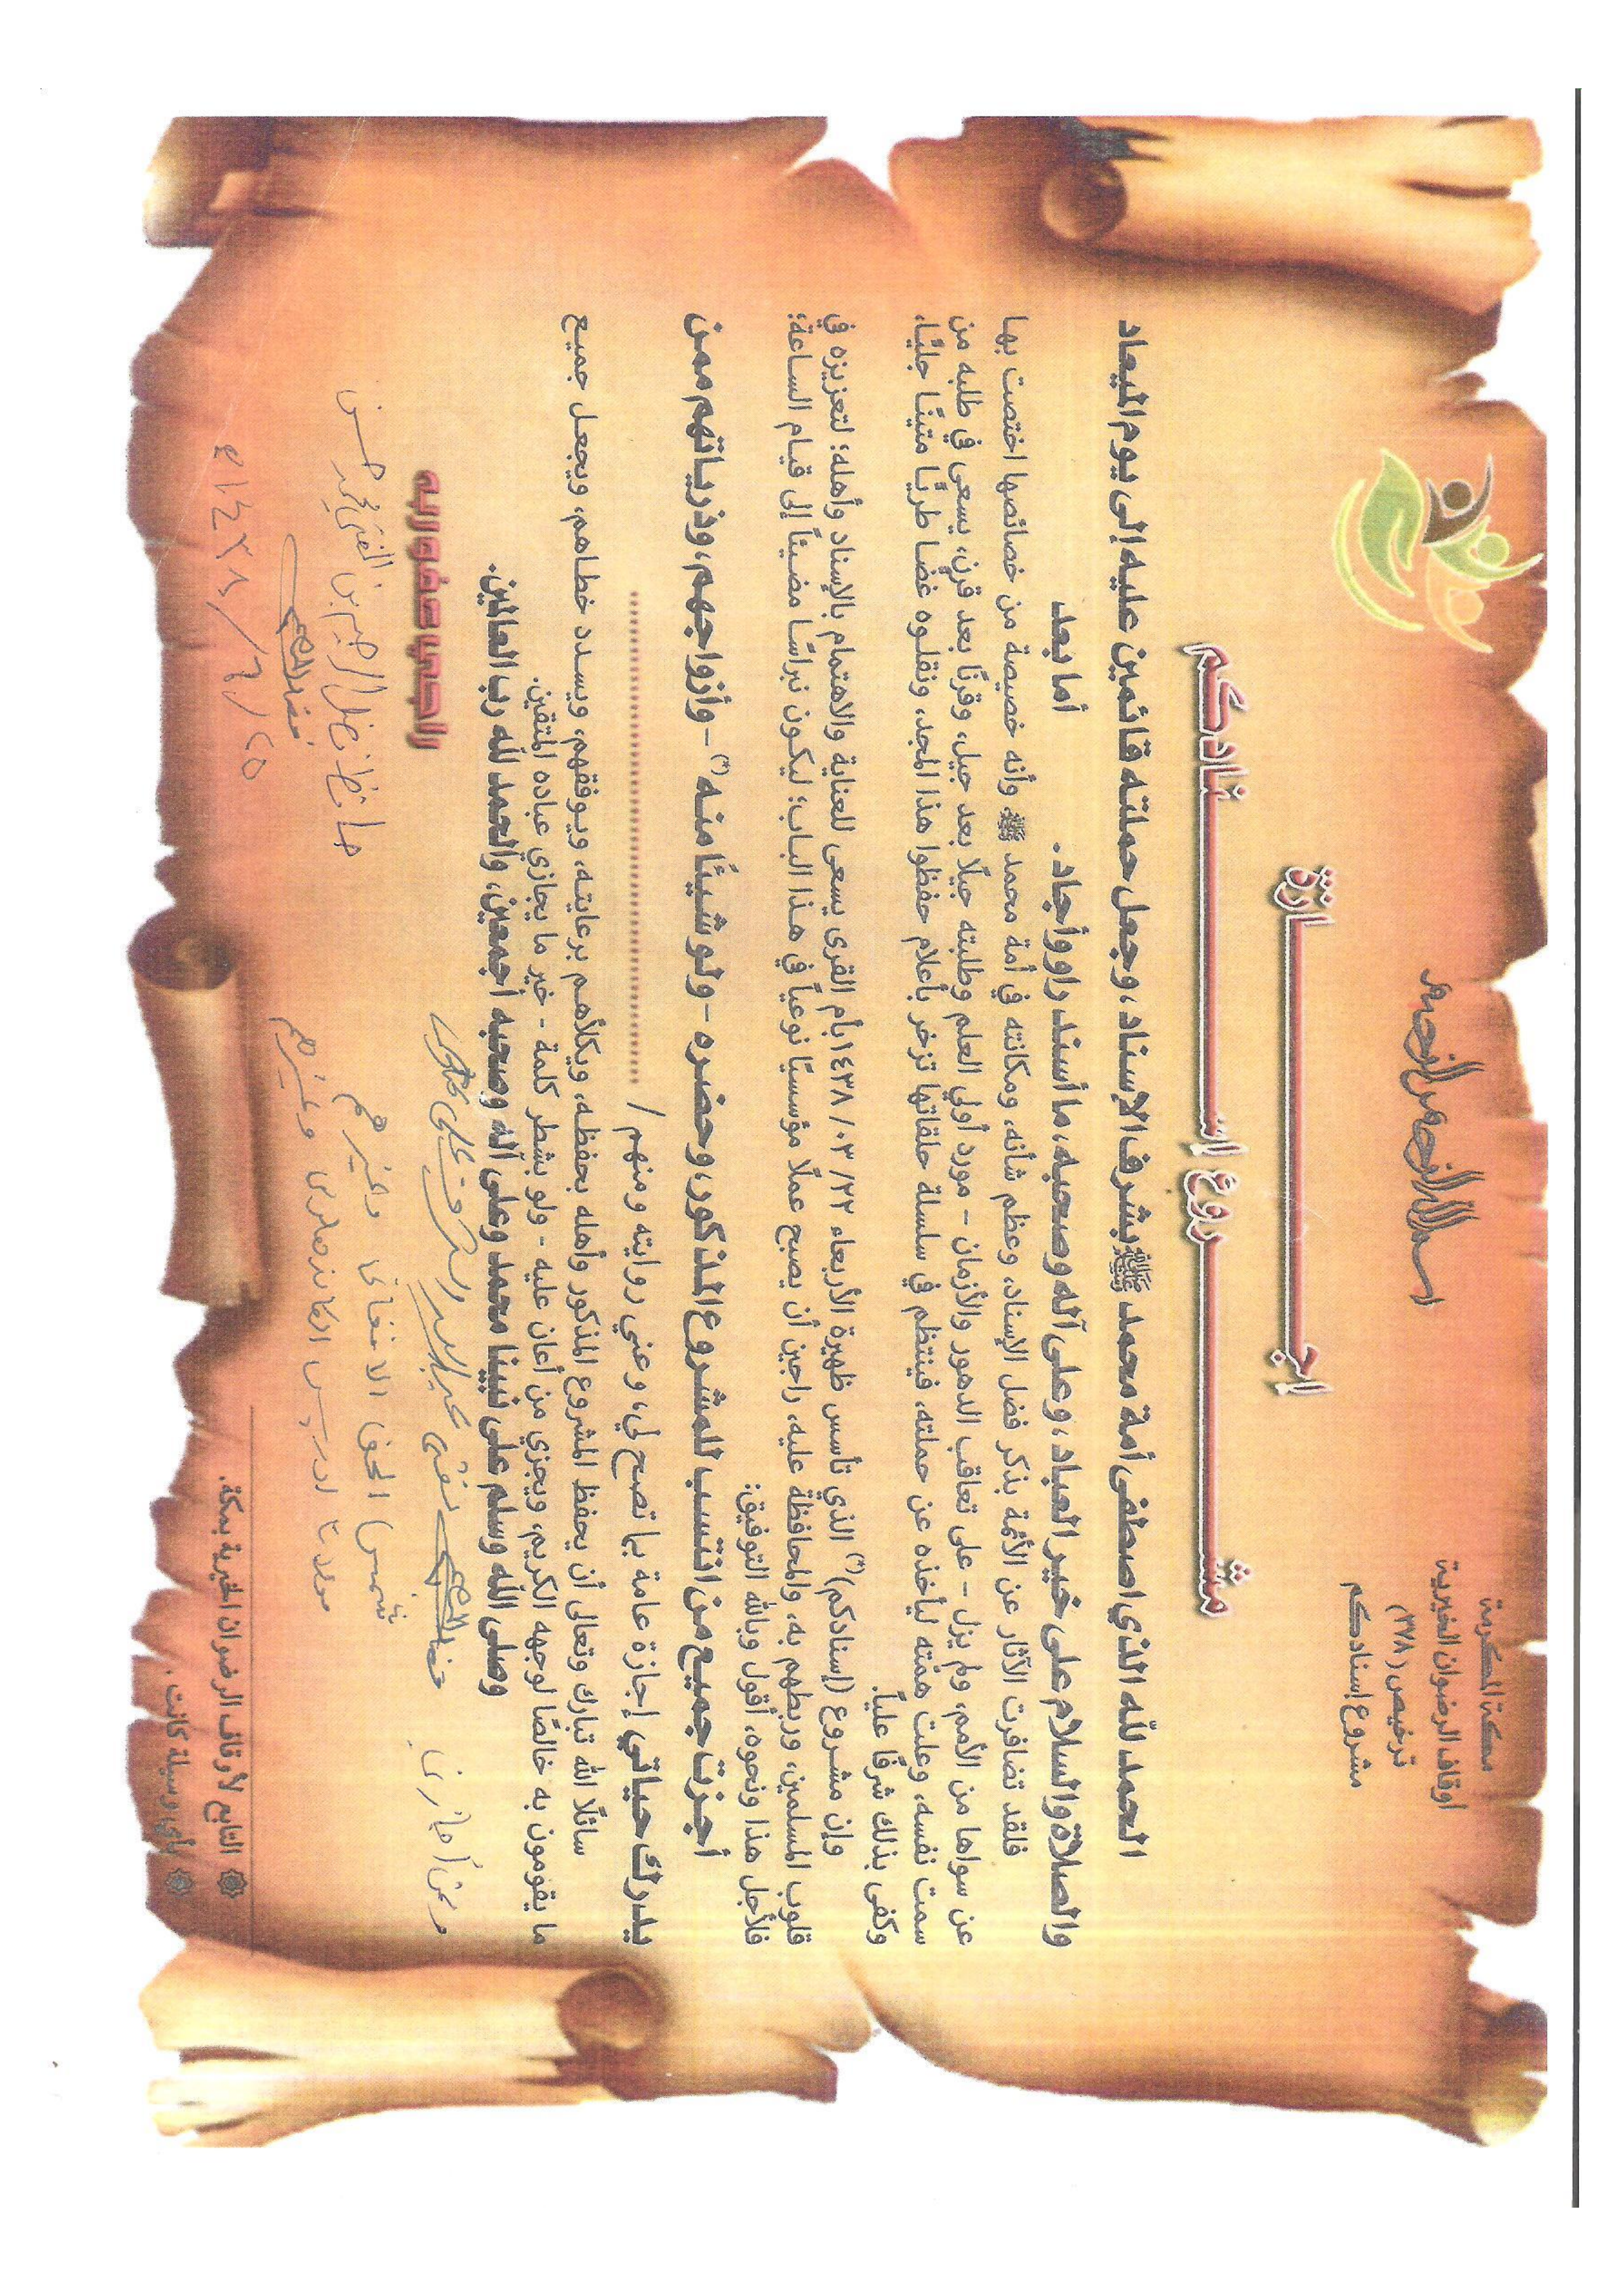 مكة المكرمة
أوقاف الرضوان الخيرية
ترخيص (٣٧٨)
مشروع إسنادكم
بسم الله الرحمن الرحيم
إجـــــازة
مشـــــروع إسـنـــادكم
الحمد لله الذي اصطفى أمة محمد ﷺ بشرف الإسناد، وجعل حملته قائمين عليه إلى يوم الميعاد
والصلاة والسلام على خير العباد، وعلى آله وصحبه، ما أسند راو وأجاد. أما بعد
فلقد تضافرت الآثار عن الأئمة بذكر فضل الإسناد، وعظم شأنه، ومكانته في أمة محمد ﷺ وأنه خصيصة من خصائصها اختصت بها
عن سواها من الأمم، ولم يزل - على تعاقب الدهور والأزمان - مورد أولي العلم وطلبته جيلًا بعد جيل، وقرنًا بعد قرن، يسعى في طلبه من
سمت نفسه، وعلت همته ليأخذه عن حملته، فينتظم في سلسلة حلقاتها تزخر بأعلام حفظوا هذا المجد، ونقلوه غضا طريًا متينًا جليًا،
وكفى بذلك شرفًا عليًا.
وإن مشروع (إسنادكم)(*) الذي تأسس ظهيرة الأربعاء ٢٢/ ٠٣/ ١٤٣٨ بأم القرى يسعى للعناية والاهتمام بالإسناد وأهله؛ لتعزيزه في
قلوب المسلمين، وربطهم به، والمحافظة عليه، راجين أن يصبح عملًا مؤسسيًا نوعياً في هذا الباب؛ ليكون نبراسًا مضيئاً إلى قيام الساعة؛
فلأجل هذا ونحوه، أقول وبالله التوفيق:
أجزت جميع من انتسب للمشروع المذكور، وحضره - ولو شيئًا منه(*) - وأزواجهم، وذرياتهم ممن
يدرك حياتي إجازة عامة بما تصح لي، وعني روايته ومنهم / ..........................
سائلًا الله تبارك وتعالى أن يحفظ المشروع المذكور وأهله بحفظه، ويكلأهم برعايته، ويوفقهم، ويسدد خطاهم، ويجعل جميع
ما يقومون به خالصًا لوجهه الكريم، ويجزي من أعان عليه - ولو بشطر كلمة - خير ما يجازي عباده المتقين.
وصلى الله وسلم على نبينا محمد وعلى آله وصحبه أجمعين، والحمد لله رب العالمين.
راجي عفو ربه
وغيرهم
شمس الحق الأفغاني
مولانا ادريس الكاندهلوى وغيرهم
حافظ فضل الرحيم بن المفتي محمد حسن
٢٥/٦/١٤٣٨ه
التابع لأوقاف الرضوان الخيرية بمكة.
بأي وسيلة كانت.